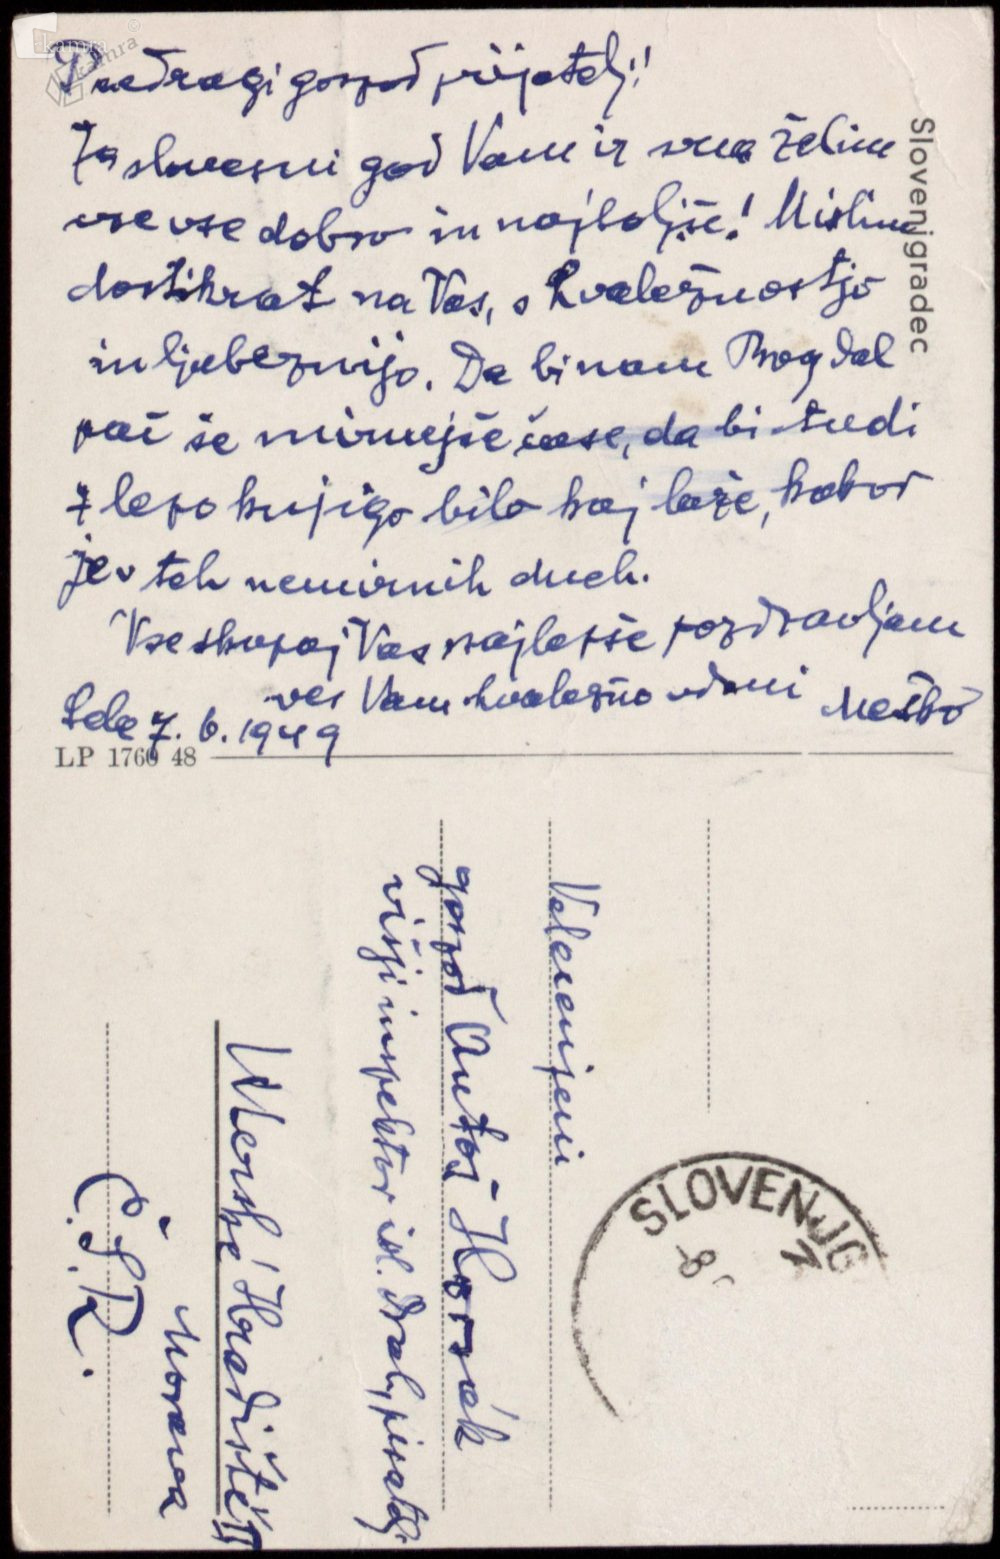 Predragi gospod prijatelj!
Za slovesni god Vam iz srca želim
vse vse dobro in najboljše! Mislim
dostikrat na Vas, s hvaležnostjo
in ljubeznijo. Da bi nam Bog dal
pač še mirnejše čase, da bi tudi
z lepo knjigo bilo kaj laže, kakor
je v teh nemirnih dneh.
Vse skupaj Vas najlepše pozdravljam
ves Vam hvaležno udani Meško
Sele 7. 6. 1949
LP 1760 48
Slovenjgradec
Velecenjeni
gospod Antoš Horsák
višji inspektor isl. drah, pisatelj
Uherské Hradiště II
Morava
Č.S.R.
SLOVENJG
kamra
kamra